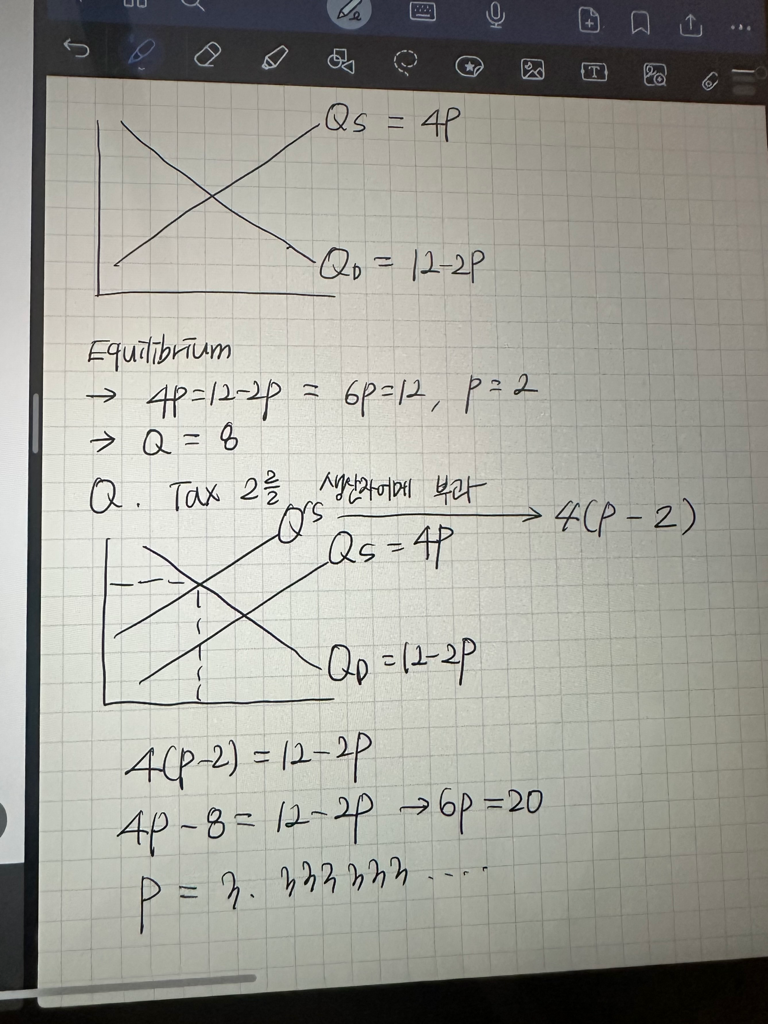 Qs = 4P
QD = 12-2P
Equilibrium
→ 4P=12-2P = 6P=12, P=2
→ Q = 8
Q. Tax 2 생산자에게 부과
Q's → 4(P-2)
Qs = 4P
QD = 12-2P
4(P-2) = 12-2P
4P-8 = 12-2P → 6P=20
P = 3.333333....